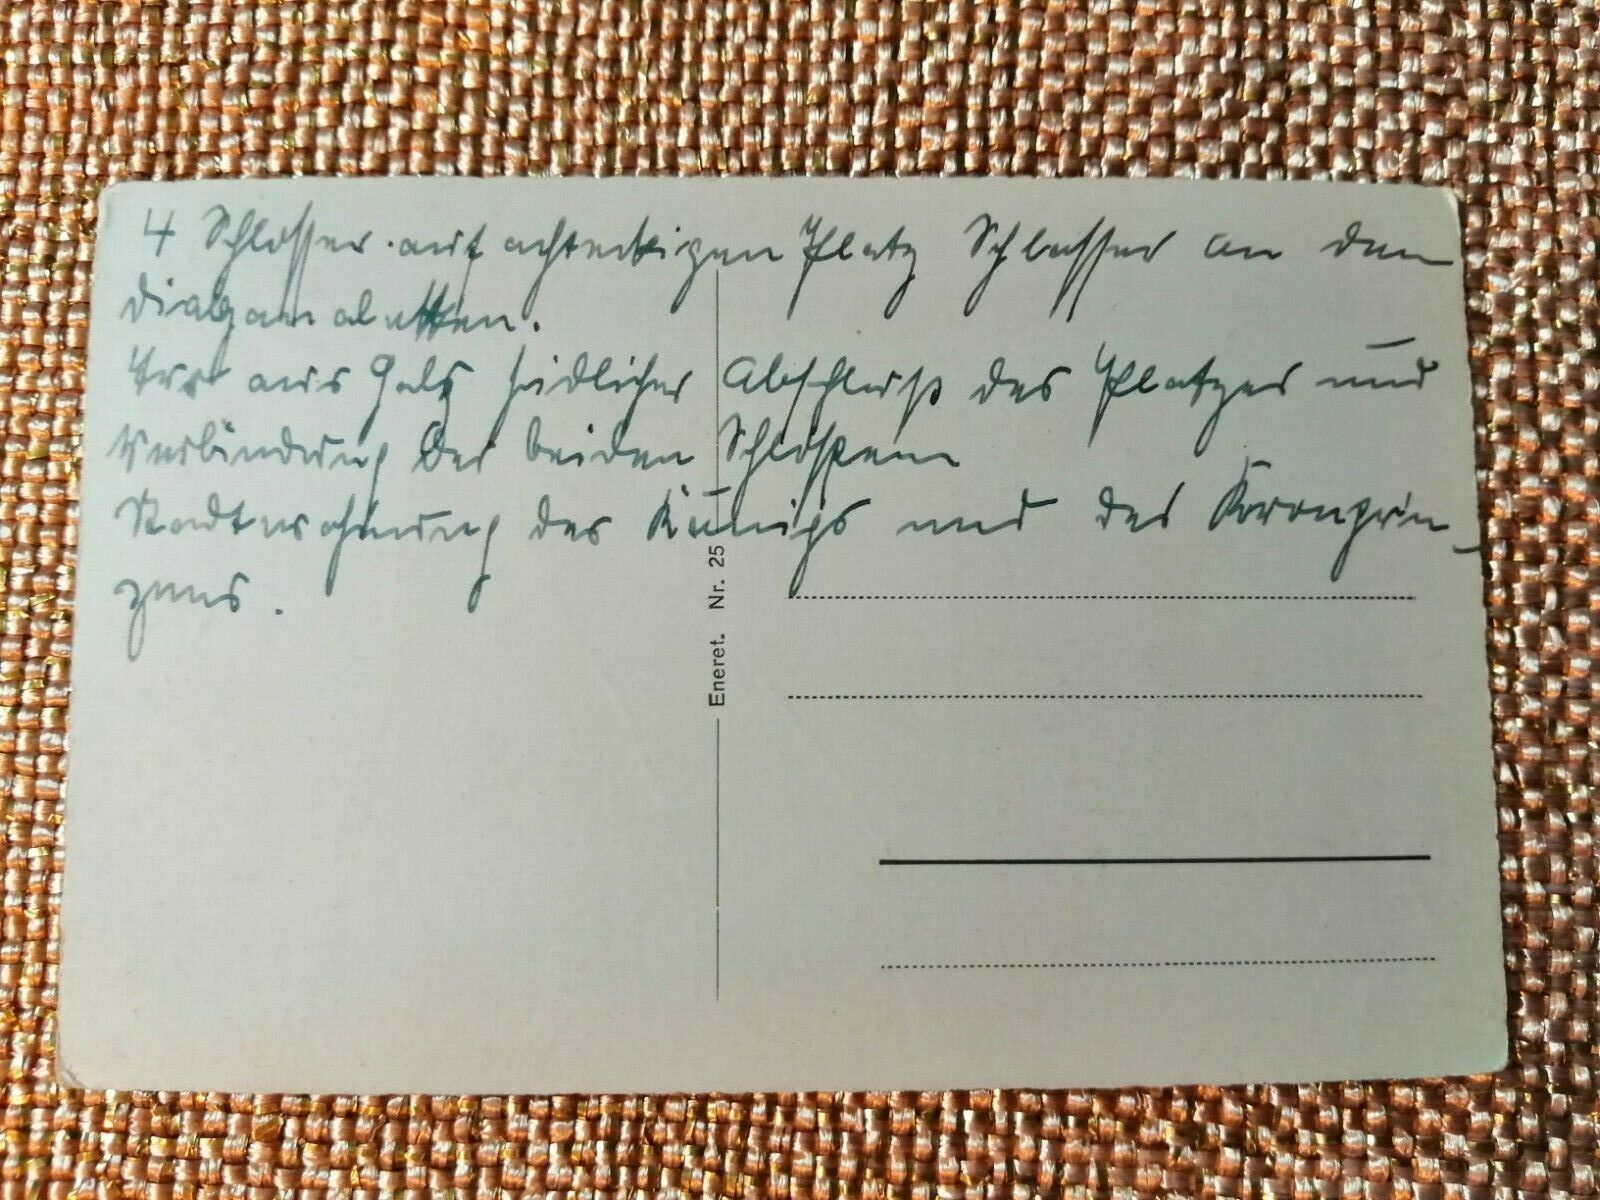 4 Schlösser auf achteckigen Platz Schlösser an den
Diagonalen.
Tor aus Holz südlicher Abschluß des Platzes und
Verbindung der beiden Schlößer
Stadtwohnung des Königs und des Kronprin-
zens.
Eneret. Nr. 25